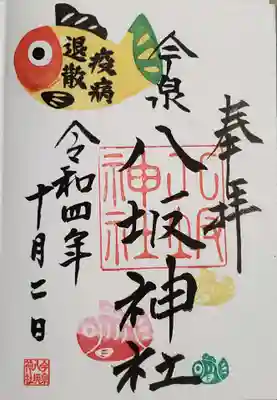 奉拝
今泉
八坂神社
八坂
神社
疫病
退散
令和四年
十月二日